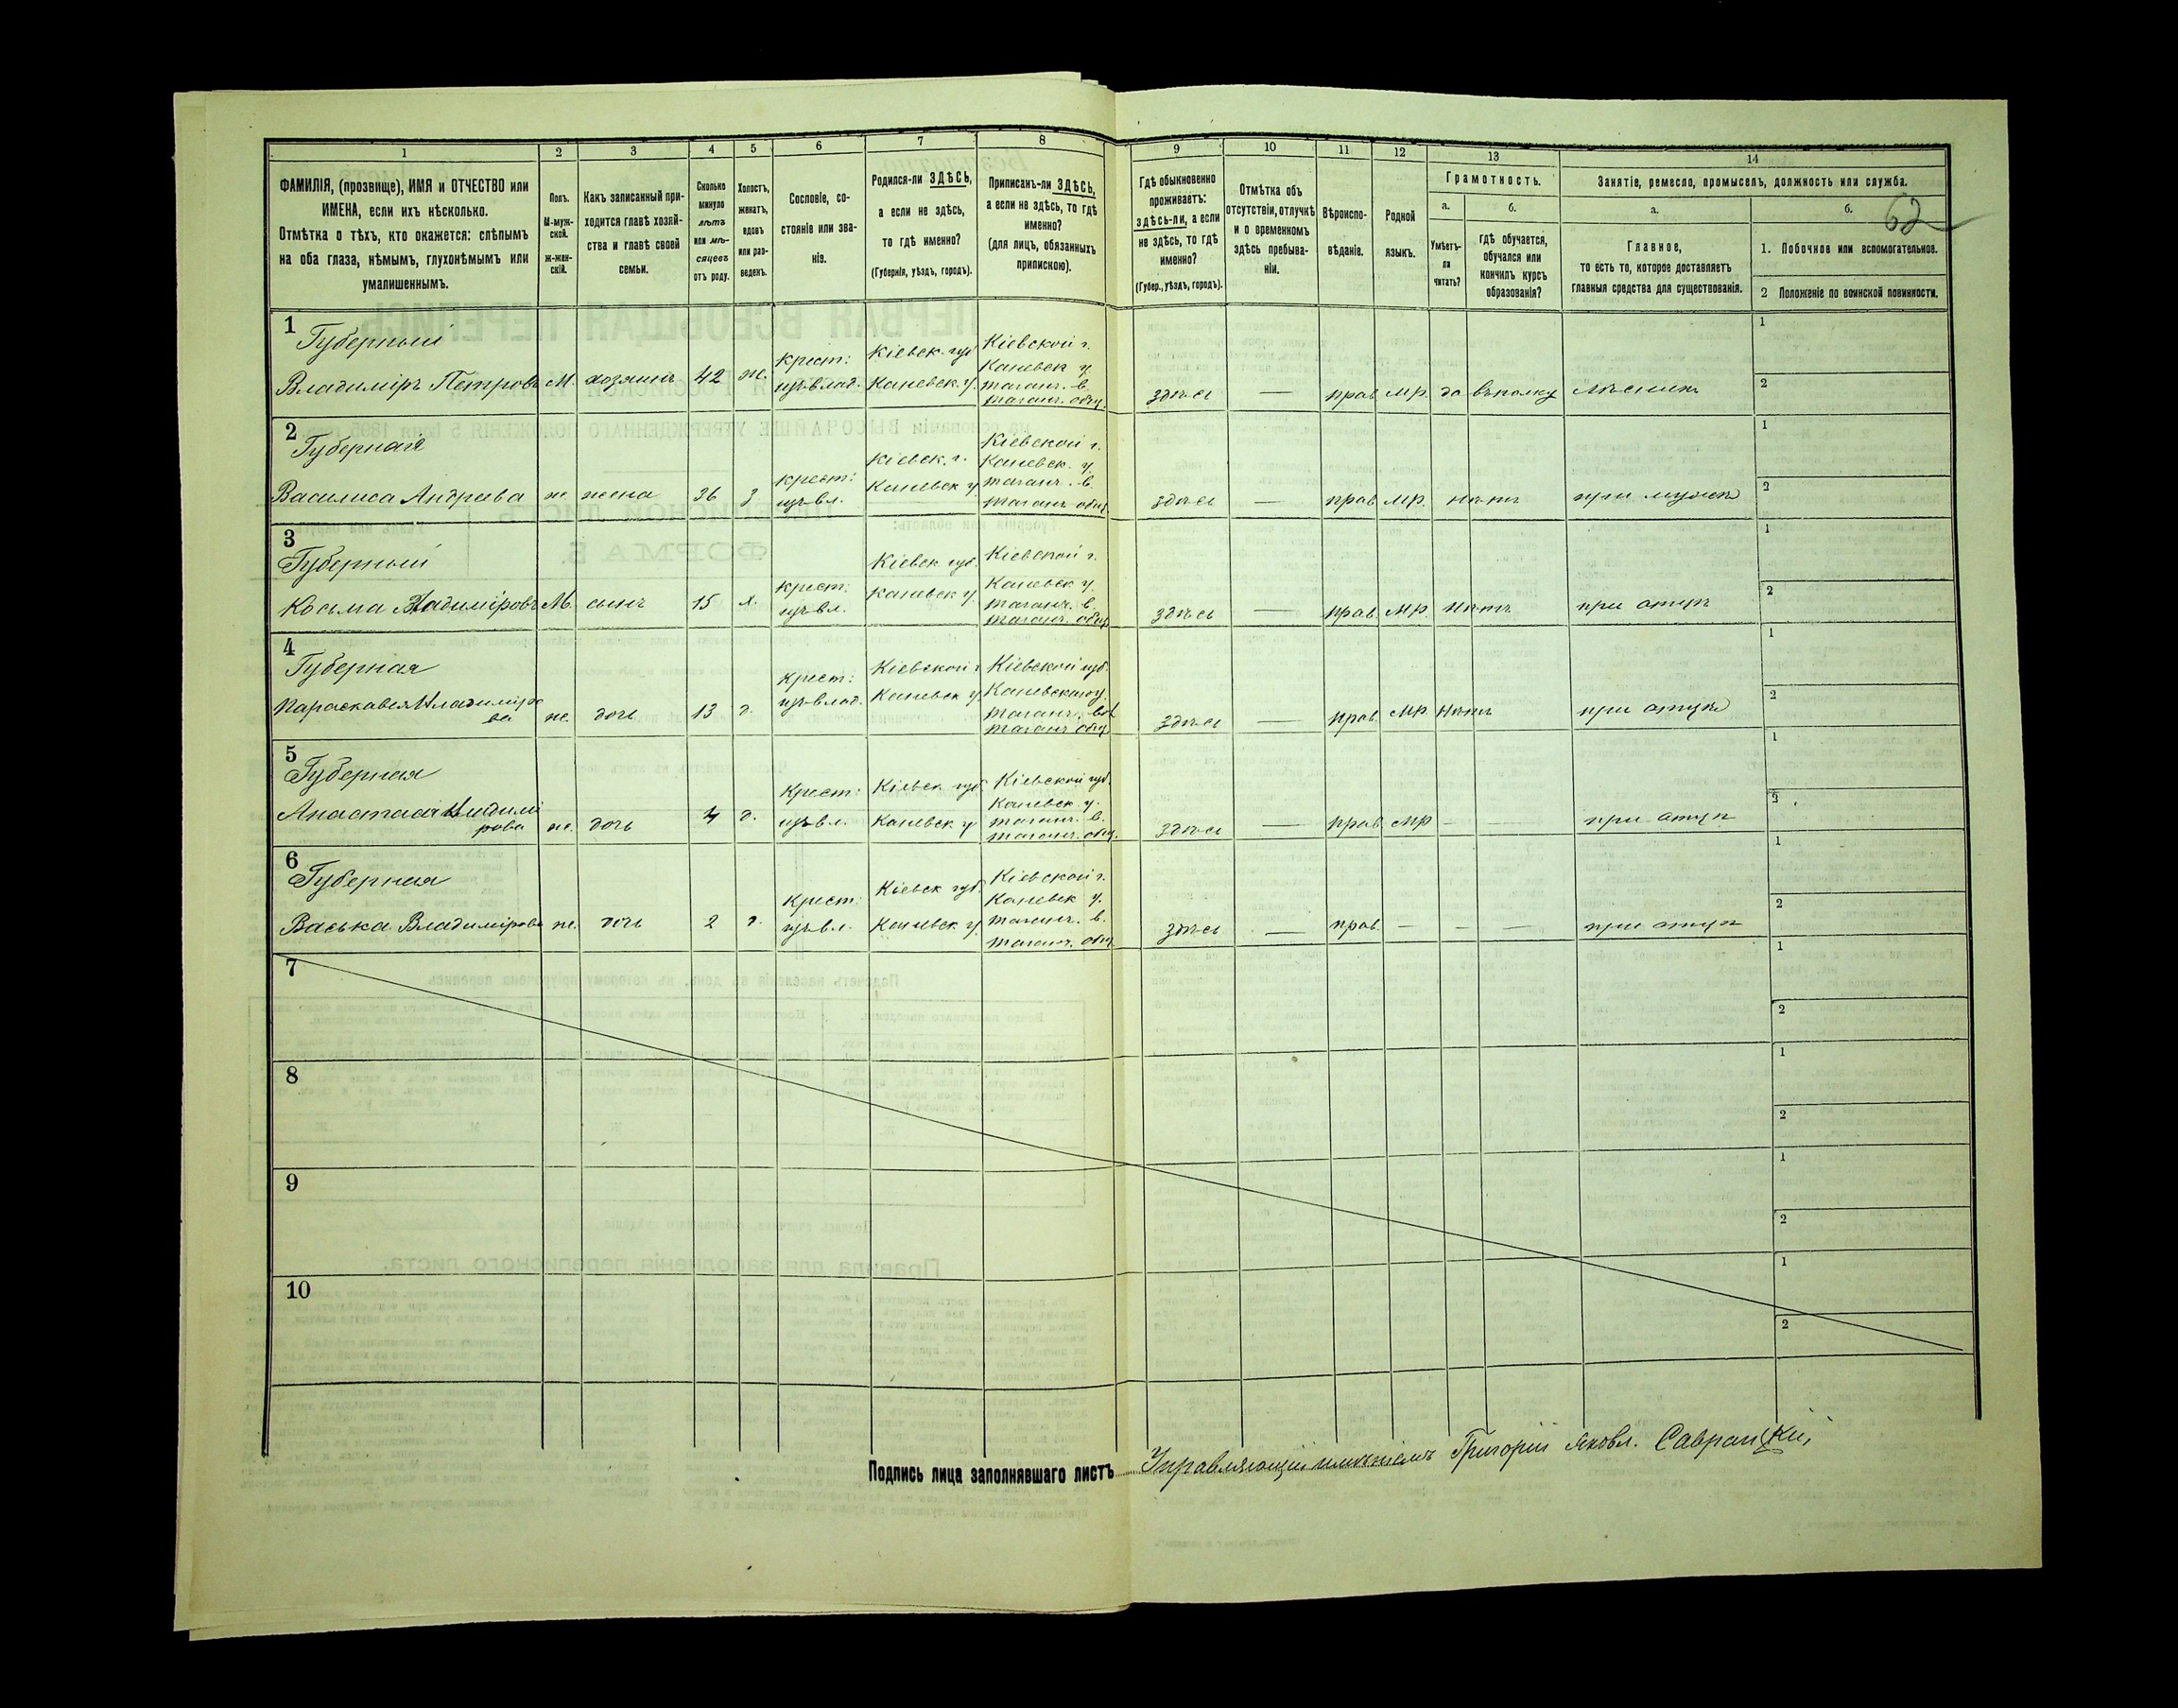 62
1 2 3 4 5 6 7 8 9 10 11 12 13 14
ФАМИЛІЯ, (прозвище), ИМЯ и ОТЧЕСТВО или
ИМЕНА, если ихъ нѣсколько.
Отмѣтка о тѣхъ, кто окажется: слѣпымъ
на оба глаза, нѣмымъ, глухонѣмымъ или
умалишеннымъ.
Полъ.
М-муж-
ской.
ж-жен-
скій.
Какъ записанный при-
ходится главѣ хозяй-
ства и главѣ своей
семьи.
Сколько
минуло
лѣтъ
или мѣ-
сяцевъ
отъ роду.
Холостъ,
женатъ,
вдовъ
или раз-
веденъ.
Сословіе, со-
стояніе или зва-
ніе.
Родился-ли ЗДѢСЬ,
а если не здѣсь,
то гдѣ именно?
(Губернія, уѣздъ, городъ).
Приписанъ-ли ЗДѢСЬ,
а если не здѣсь, то гдѣ
именно?
(для лицъ, обязанныхъ
припискою).
Гдѣ обыкновенно
проживаетъ:
ЗДѢСЬ-ЛИ, а если
не здѣсь, то гдѣ
именно?
(Губер., уѣздъ, городъ).
Отмѣтка объ
отсутствіи, отлучкѣ
и о временномъ
здѣсь пребыва-
ніи.
Вѣроиспо-
вѣданіе.
Родной
языкъ.
Грамотность.
а.
Умѣетъ-
ли
читать?
б.
гдѣ обучается,
обучался или
кончилъ курсъ
образованія?
Занятіе, ремесло, промыселъ, должность или служба.
а.
Главное,
то есть то, которое доставляетъ
главныя средства для существованія.
б.
1. Побочное или вспомогательное.
2 Положеніе по воинской повинности.
1
Губерный
Владиміръ Петровъ М. хозяинъ 42 ж.
крест:
изъ влад.
Кіевск. губ
Каневск. у.
Кіевской г.
Каневск у.
таганч. в.
таганч. общ.
здѣсь — прав. мр. да въ полку лѣсникъ
1
2
2
Губерная
Василиса Андреева ж. жена 36 з.
крест:
изъ вл.
Кіевск. г.
Каневск у.
Кіевской г.
Каневск. у.
таганч. в.
таганч. общ.
здѣсь — прав. мр. нѣтъ при мужѣ
1
2
3
Губерный
Косьма Владиміровъ М. сынъ 15 х.
крест:
изъ вл.
Кіевск губ.
Каневск у.
Кіевской г.
Каневск у.
таганч. в.
таганч. общ
здѣсь — прав. мр. нѣтъ при отцѣ
1
2
4
Губерная
Параскавея Владиміро
ва ж. дочь 13 д.
крест:
изъ влад.
Кіевской г
Каневск у.
Кіевской губ.
Каневского у.
таганч. вол
таганч. общ
здѣсь — прав. мр. нѣтъ при отцѣ
1
2
5
Губерная
Анастасія Владимі
рова ж. дочь 4 д.
крест:
изъ вл.
Кіевск губ.
Каневск у
Кіевской губ.
Каневск у.
таганч. в.
таганч. общ.
здѣсь — прав. мр — — при отцѣ
1
2
6
Губерная
Васька Владимірова ж. дочь 2 д.
крест:
изъ вл.
Кіевск губ.
Каневск у.
Кіевской г.
Каневск у.
таганч. в.
таганч. общ
здѣсь — прав. — — — при отцѣ
1
2
7
1
2
8
1
2
9
1
2
10
1
2
Подпись лица заполнявшаго листъ Управляющій имѣніемъ Григорій Яковл. Савранскій